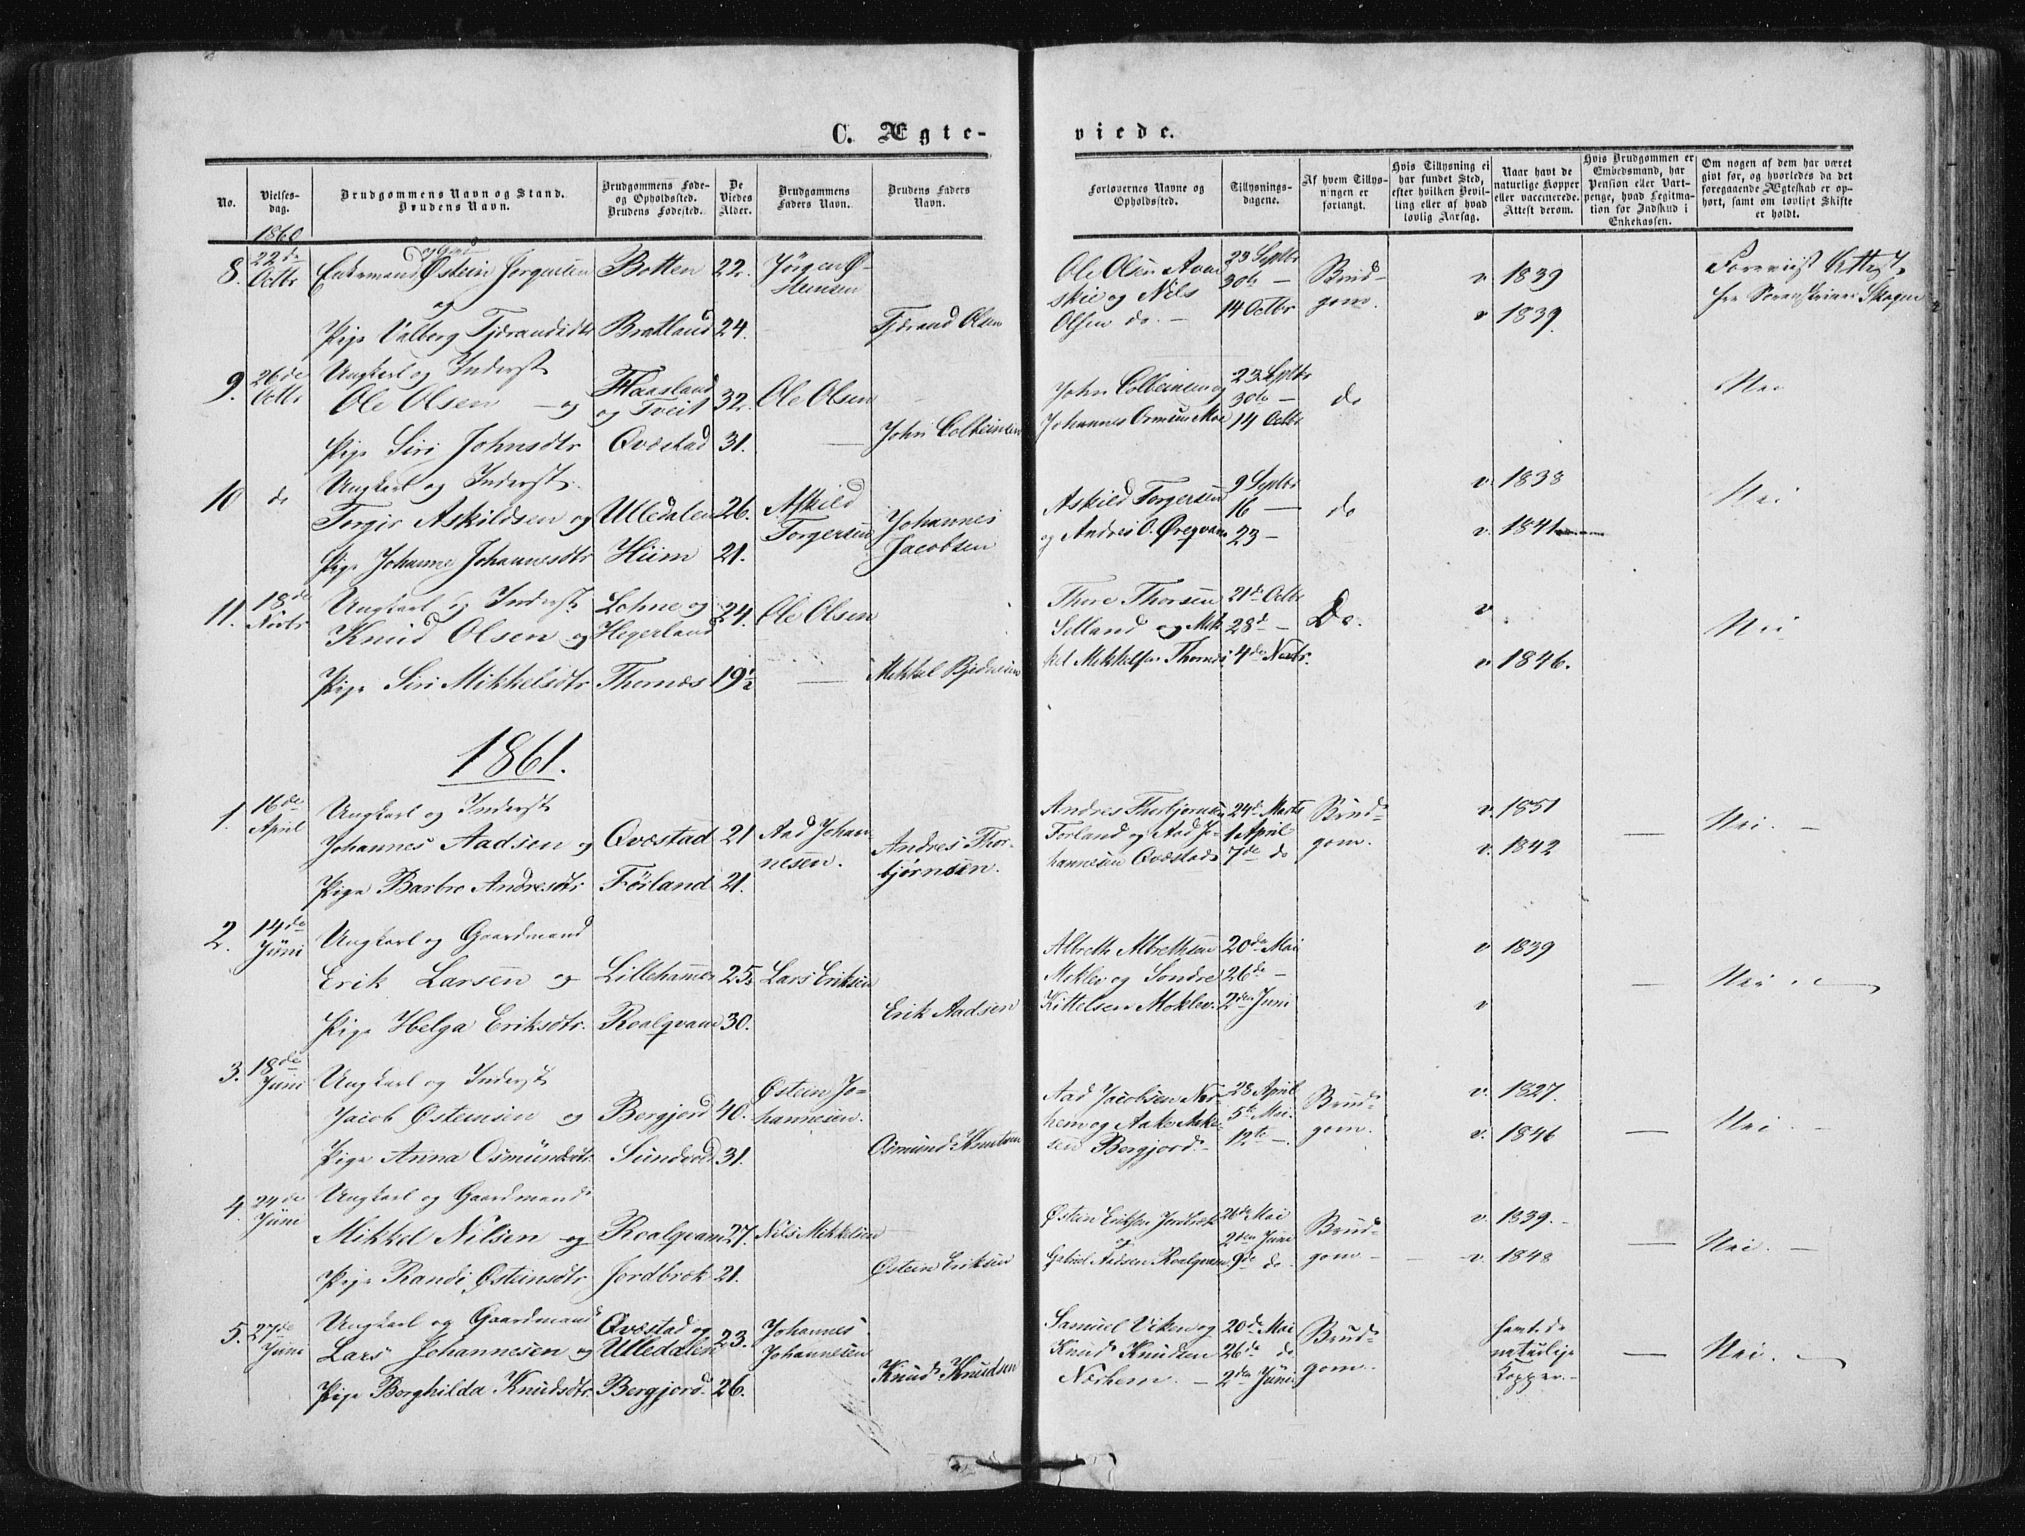 C. Ægte-
No.
Vielses-
dag.
Brudgommens Navn og Stand.
Brudens Navn.
Brudgommens Føde-
og Opholdssted.
Brudens Fødested.
De
Viedes
Alder.
Brudgommens
Faders Navn.
Brudens Faders
Navn.
1860
8. 22de Octbr
Enkemand og Gmd Østein Jørgensen Botten 22. Jørgen Ø-
steinsen
og
Pige Valborg Tjærandsdtr Bratland 24. Tjærand Olsen
9. 26de Octbr
Ungkarl og Inderst
Ole Olsen og Haasland og Tveit 32. Ole Olsen
Pige Siri Johnsdtr Qvæstad 31. John Colbeinsen
10 do
Ungkarl og Inderst
Torgir Askildsen og Ulledalen 26. Askild Torgersen
Pige Johanne Johannesdtr Hiim 21. Johannes Jacobsen
11. 18de Novbr
Ungkarl og Inderst
Knud Olsen og Lohne og Hegerland 24. Ole Olsen
Pige Siri Mikkelsdtr Thornæs 19½ Mikkel
1861.
1. 16de April
Ungkarl og Inderst
Johannes Aadsen og Qvæstad 21 Aad Johan-
nesen.
Pige Barbro Andresdtr Førland 21. Andres Thor-
bjørnsen.
2. 14de Juni
Ungkarl og Gaardmand
Erik Larsen og Lillehammer 25. Lars Eriksen
Pige Helga Eriksdtr. Roalqvam 30. Erik Aadsen
3. 18de Juni
Ungkarl og Inderst
Jacob Østeinsen og Bergjord 40. Østein Jo-
hannesen.
Pige Anna Osmundsdtr. Sundvod 31. Osmund Knutsen
4. 24de Juni
Ungkarl og Gaardmand
Mikkel Nilsen og Roalqvam 27. Nils Mikkelsen
Pige Randi Østeinsdtr Jordbræk 21. Østein Eriksen
5. 27de Juni
Ungkarl og Gaardmand
Lars Johannesen og Qvæstad og Ulledalen 23. Johannes Johannesen
Pige Borghilda Knudsdtr Bergjord. 26. Knud Knudsen
viede.
Forlovernes Navne og
Opholdssted.
Tillysnings-
dagene.
Af hvem Tillys-
ningen er
forlangt.
Hvis Tillysning ei
har fundet Sted,
efter hvilken Bevil-
ling eller af hvad
lovlig Aarsag.
Naar havt de
naturlige Kopper
eller vaccinerede.
Attest derom.
Hvis Brudgommen er
Embedsmand, har
Pension eller Vart-
penge, hvad Legitma-
tion for Indskud i
Enkekassen.
Om nogen af dem har været
givt før, og hvorledes da det
foregaaende Ægteskab er op-
hørt, samt om lovligt Skifte
er holdt.
Ole Olsen 23 Septbr Brud- v 1839 Foreviist Attest
og Nils 30te — gom.
Olsen do. — 14 Octbr v 1839.
John Colbeinsen og 23 Septbr Nei
30te — do
Johannes Moe 14 Octbr
Askild Torgersen 9 Septbr v. 1838 Nei
16 — do
og Andres O. 23 — v. 1841
Thore Thorsen 21de Octbr v
Selland og Mik 28de — Do. Nei
kel Mikkelsen Thornæs 4de Novbr. v 1846.
Andres Thorbjørnsen 24de Marts Brud- v. 1851
Førland og Aad Jo- 1 April gom. — Nei. —
hannesen Qvæstad 7de do v. 1842
Albreth Albrethsen 20de Mai v 1839
Moklev og Sondre 26de — — Nei
Kittelsen Moklev. 2den Juni v
Aad Jacobsen Nør- 28 April v. 1827.
hem og Aake 5te Mai. Brud- Nei. —
sen Bergjord. 12te — gom. v. 1846 —
Østein Eriksen Jordbræk 26de Mai v. 1839. —
og 2den Juni Brud- — Nei. —
Gabriel Aadsen Roalqvam 9de do gom — v. 1848
Samuel Viken og 20de Mai havt de
Knud Knudsen 26de do Brud- naturlige — Nei.
Nørhem. — 2den Juni gom. Kopper. —